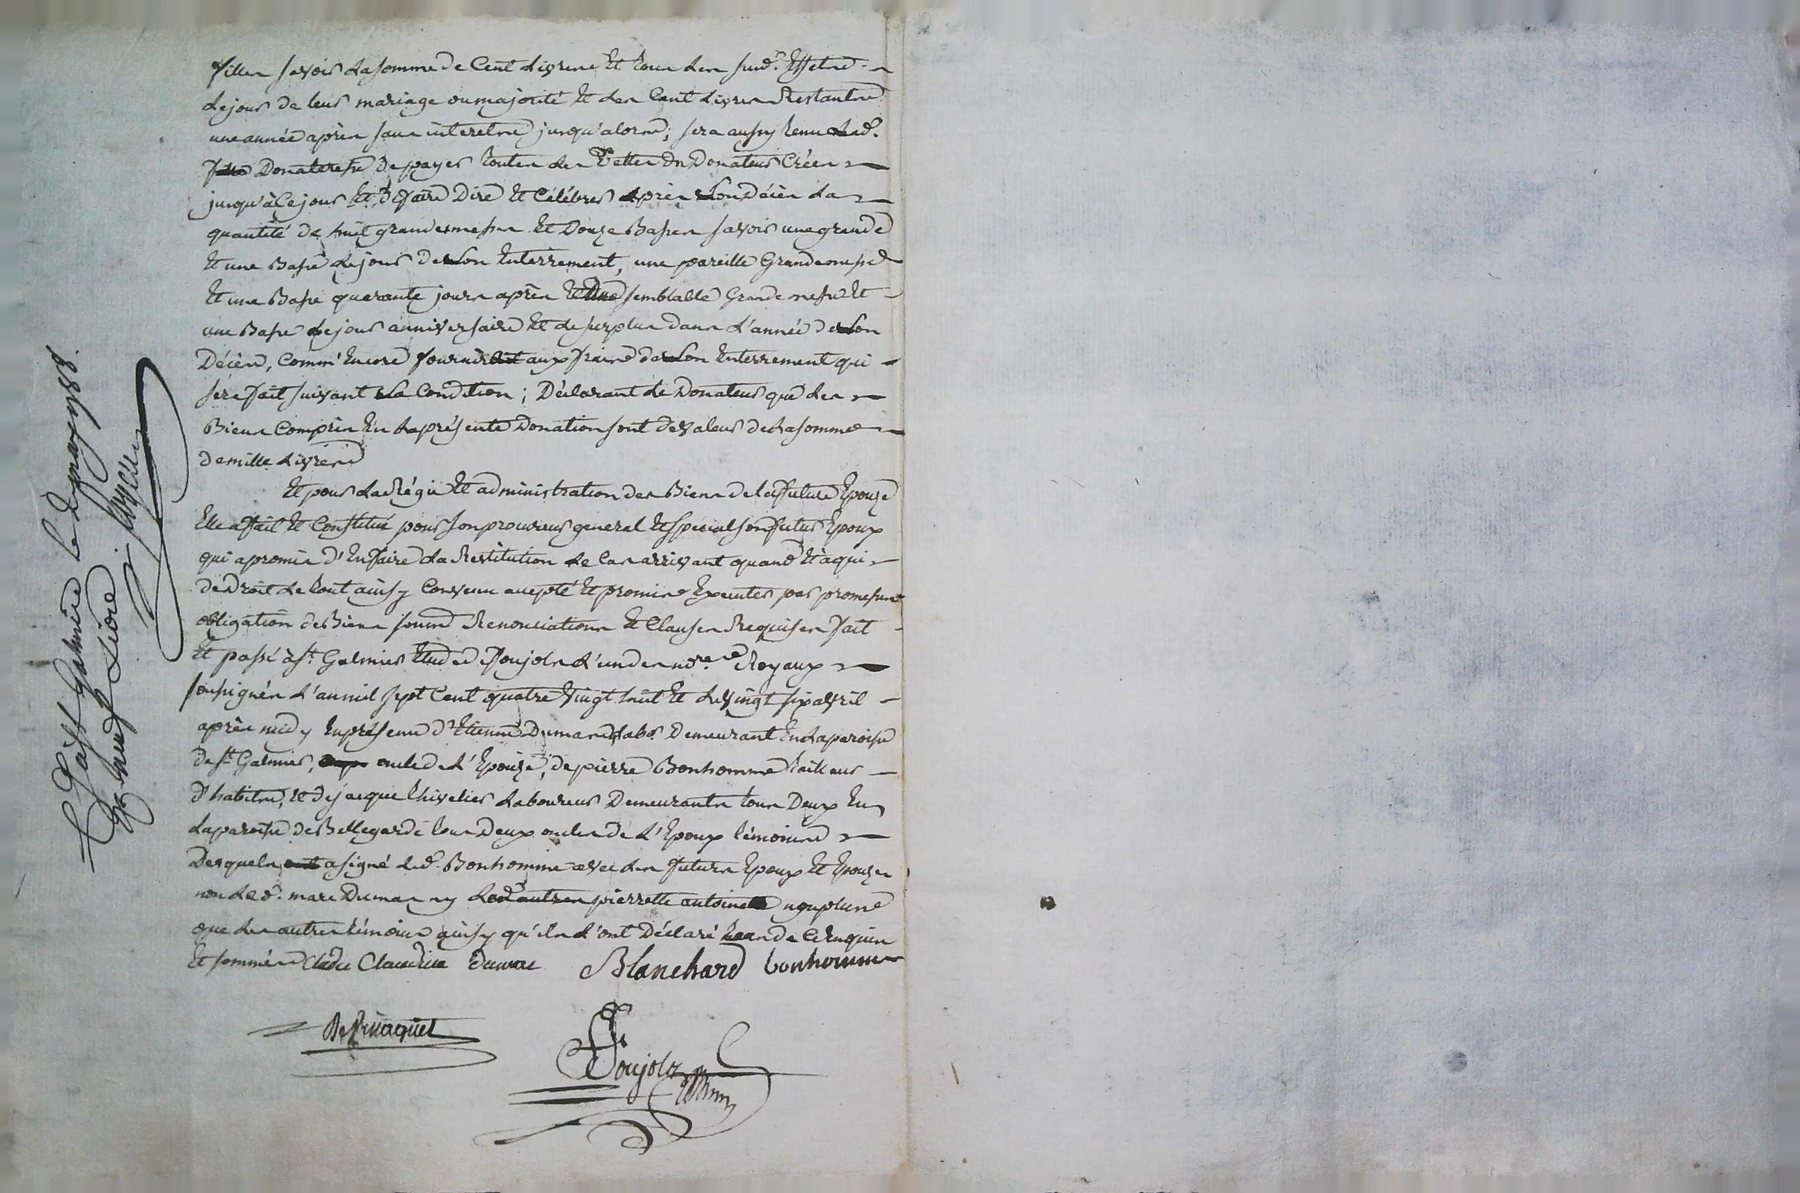 filles savoir la somme de Cent livres Et tous les susd. Effets
le jour de leur mariage ou majorité Et les Cent livres Restantes
une année après sans interetes jusqu'alors; sera aussy tenue lad.
Donateresse de payer toutes les Dettes du Donateur Créées
jusqu'à Ce jour Et de faire Dire Et Célébrer après Son Décès la
quantité de huit grandes messes Et Douze Basses savoir une grande
Et une Basse le jour de Son Enterrement, une pareille Grande messe
Et une Basse quarante jours après Et Une semblable Grande messe Et
une Basse le jour anniversaire Et le surplus dans l'année de Son
Décès, Comm' Encore fournir aux fraix de Son Enterrement qui
sera fait suivant Sa Condition; Déclarant le Donateur que les
Biens Compris En la présente Donation sont de valeur de la somme
de mille livres
Et pour la Régie Et administration des Biens de la future Epouze
Elle a fait Et Constitué pour son procureur general Et special son futur Epoux
qui a promis d'En faire la Restitution le Cas arrivant quand Et à qui
de Droit le tout ainsy Convenu accepté Et promis Executer par promesses
obligation de Biens soumd Renonciations Et Clauses Requises fait
Et passé à St. Galmier Etude de Poujolz l'un des nores Royaux
soussignés l'an mil sept Cent quatre Vingt huit Et le Vingt six avril
après midy En présence d'Etienne Dumas labr Demeurant En la paroisse
de St Galmier, oncle de l'Epouze, de pierre Bonhomme tailleur
d'habits, Et de jacque thivelier laboureur Demeurants tous Deux En
la paroisse de Bellegarde tous Deux oncles de l'Epoux témoins
Desquels a signé led. Bonhomme avec les futurs Epoux Et Epouze
non led. marc Dumas ny pierrette antoinette non plus
que les autres témoins ainsy qu'ils l'ont Déclaré de Ce Enquis
Et sommés Claudine Blanchard bonhomme
Poujolz
Galmier le 2 may 1788.